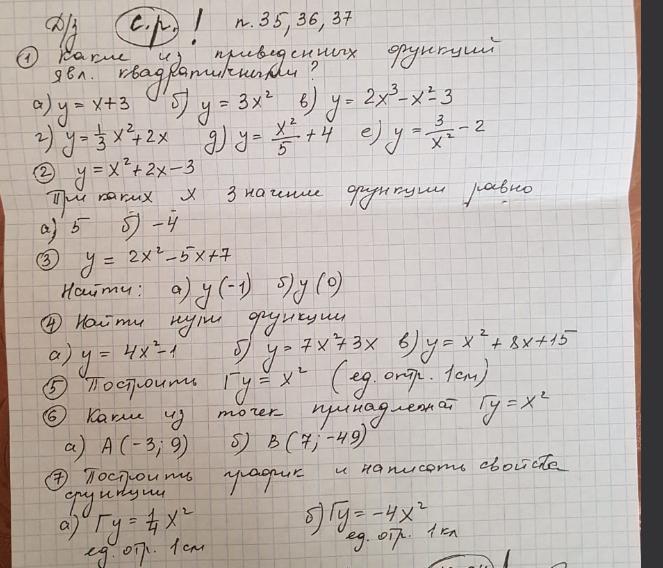 Д/з с.р.! п. 35, 36, 37
① Какие из приведенных функций
явл. квадратичными?
а) y = x+3 б) y = 3x² в) y = 2x³-x²-3
г) y = 1/3 x²+2x д) y = x²/5 + 4 е) y = 3/x² - 2
② y = x²+2x-3
При каких x значение функции равно
а) 5 б) -4
③ y = 2x²-5x+7
Найти: а) y(-1) б) y(0)
④ Найти нули функции
а) y = 4x²-1 б) y = 7x²+3x в) y = x²+8x+15
⑤ Построить Гy = x² (ед. отр. 1см)
⑥ Какие из точек принадлежат Гy = x²
а) A(-3; 9) б) B(7; -49)
⑦ Построить график и написать свойства
функции
а) Гy = 1/4 x² б) Гy = -4x²
ед. отр. 1см ед. отр. 1кл